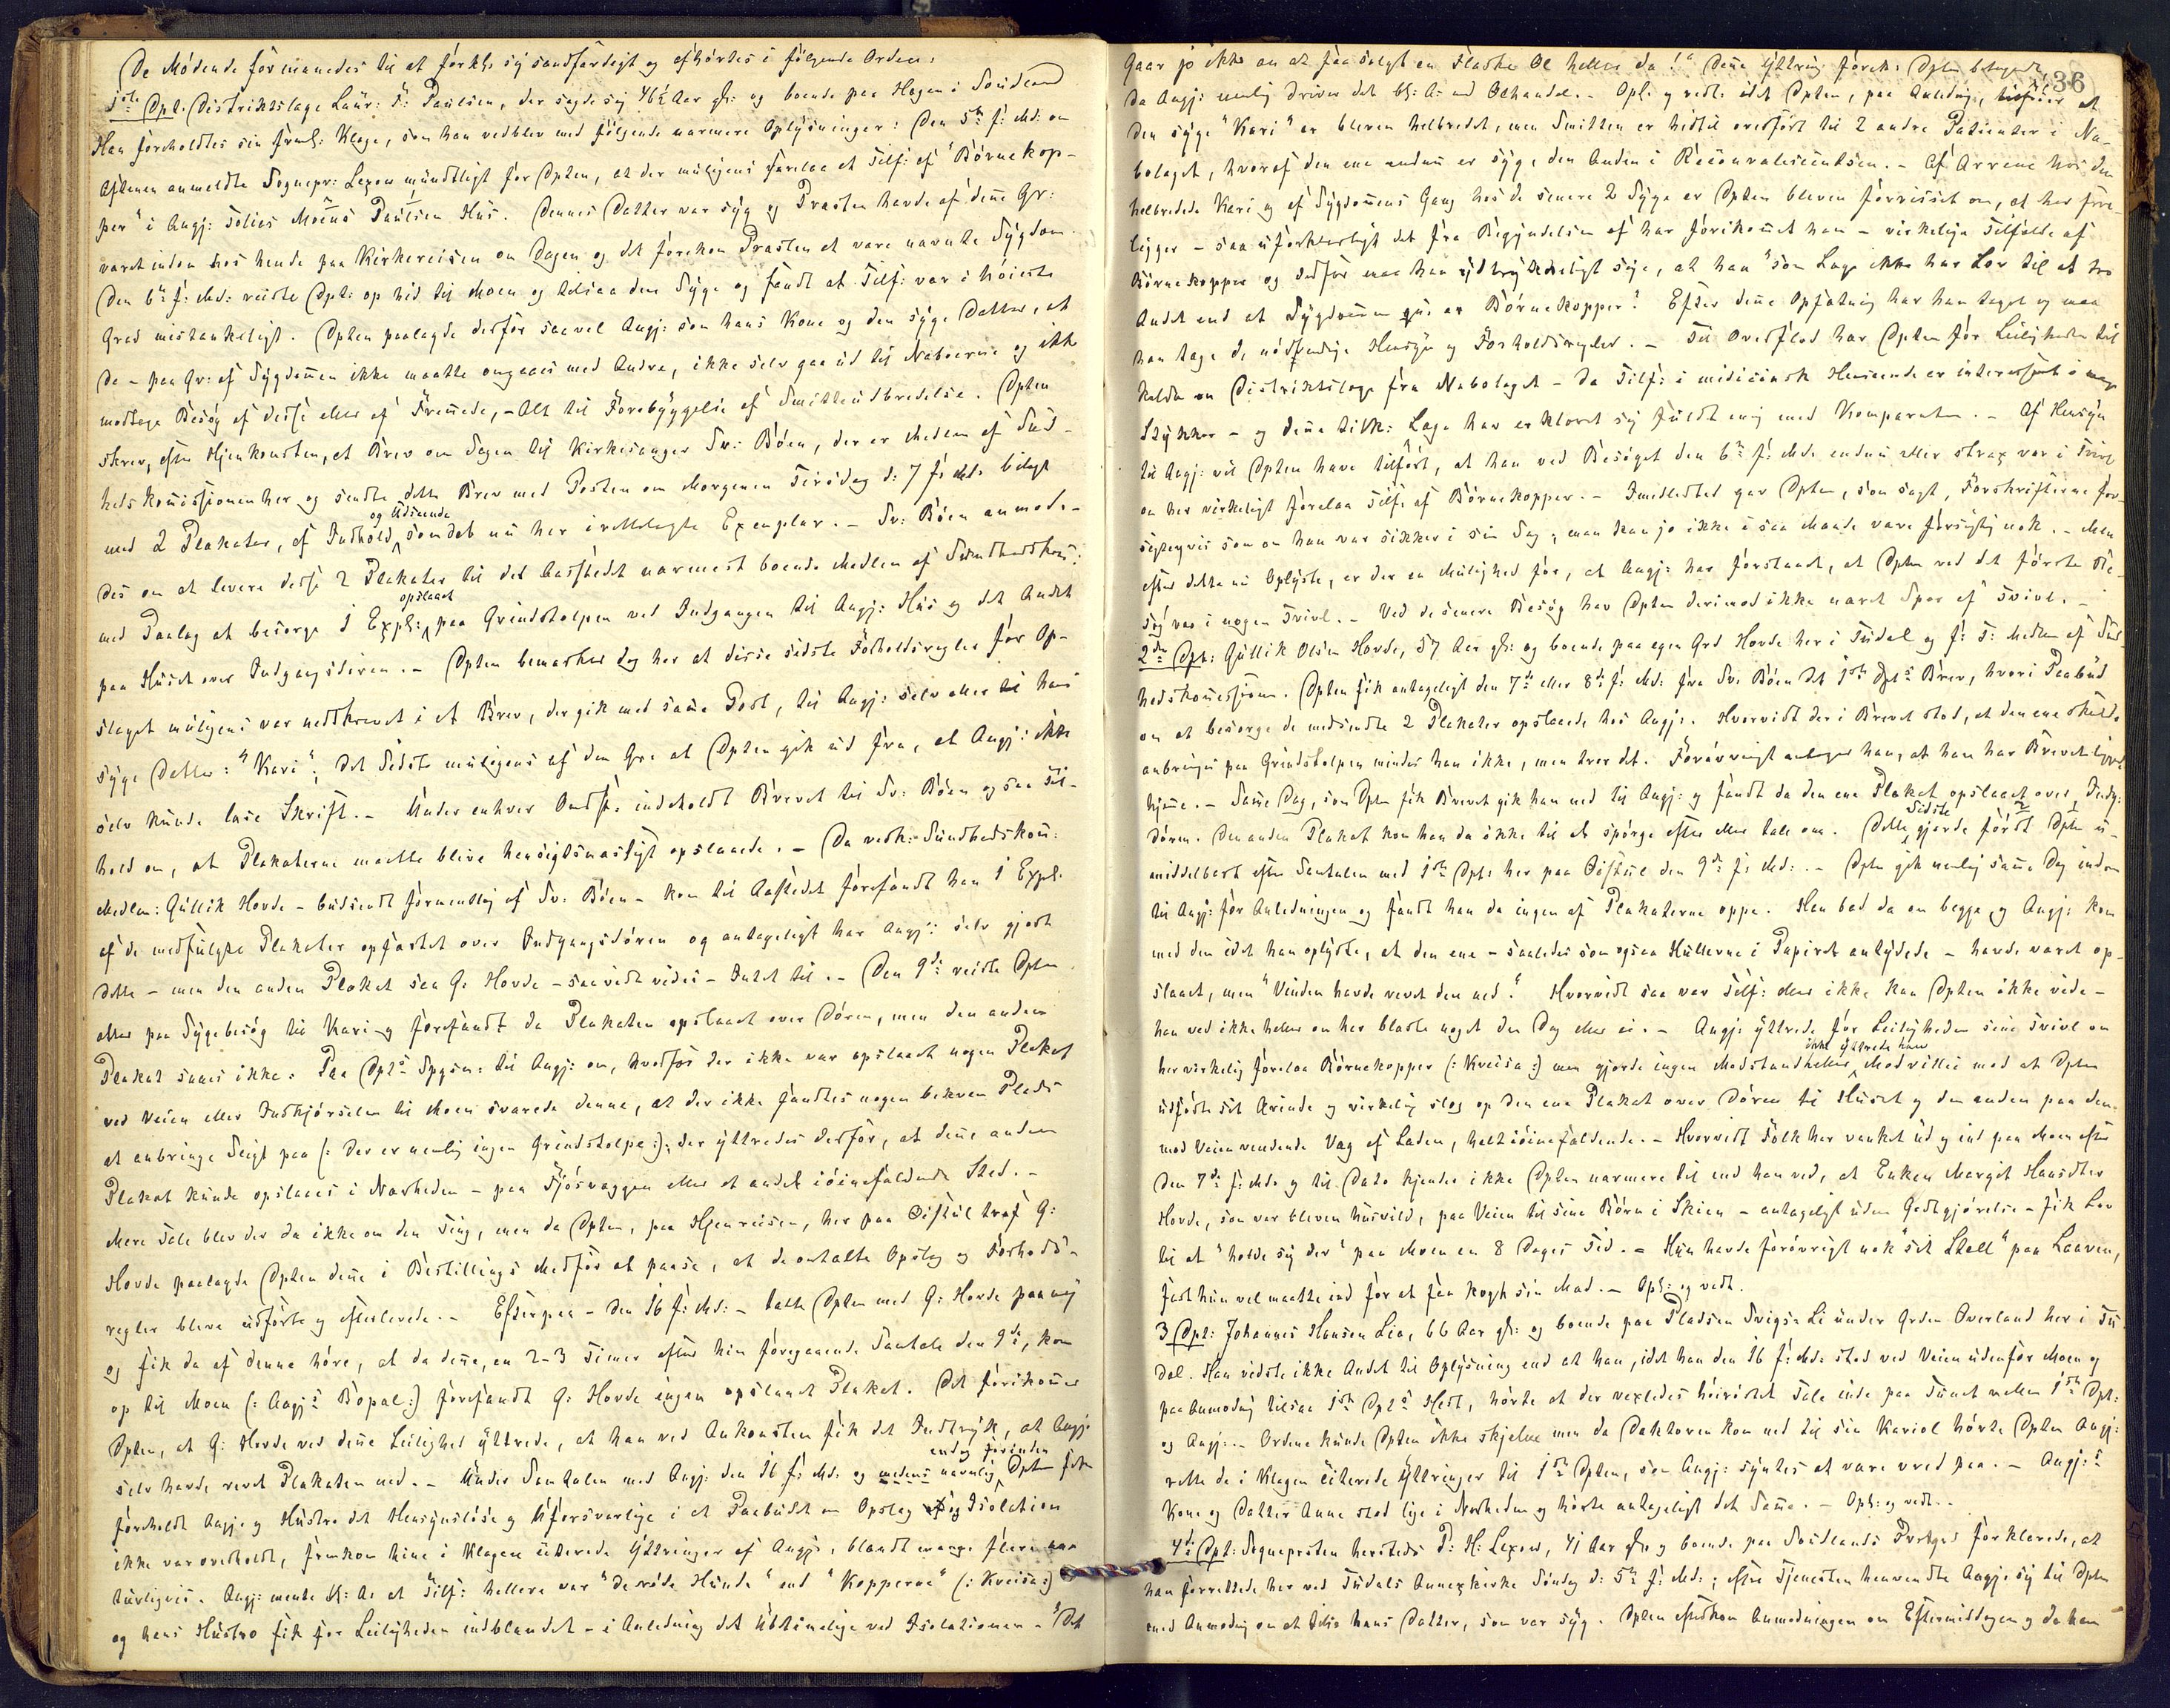 De Mödende formanedes til at forkl: sig sandfærdigt og afhörtes i fölgende Orden:
1ste Dpt: Distriktslæge Laur: F: Paulsen, der sagde sig 46½ Aar gl: og boende paa Hagen i Soudland
Han foreholdtes sin frml: Klage, som han vedblev med fölgende nærmere Oplysninger: Den 5te f: Md: om
Aftenen anmeldte Sognepr: Lexow mundtligt for Dpten, at der muligens forelaa et Tilf: af "Börnekop-
per" i Angj: Moens Paulsen Hus. Dennes Datter var syg og Præsten havde af denne Gr:
været inden hos hende paa Kirkereisen om Dagen og det forekom Præsten at være nævnte Sygdom.
Den 6te f: Md: reiste Dpt: op hid til Moen og tilsaa den Syge og fandt at Tilf: var i höieste
Grad mistænkeligt. Dpten paalagde derfor saavel Angj: som hans Kone og den syge Datter, at
de - paa Gr: af Sygdommen ikke maatte omgaaes med Andre, ikke selv gaa ud til Naboerne og ikke
modtage Besög af disse eller af Fremmede, - Alt til Forebyggelse af Smitteudbredelse. Dpten
skrev, efter Hjemkomsten, et Brev om Sagen til Kirkesanger Sv: Böen, der er Medlem af Sund-
hedskommissionen her og sendte dette Brev med Posten om Morgenen Tirsdag d: 7 f: Md: bilagt
og Udseende
med 2 Plakater, af Indhold som det nu her irettelagte Exemplar. - Sv: Böen anmode-
des om at levere disse 2 Plakater til det Aastedet nærmest boende Medlem af Sundhedskom:
opslaaet
med Paalæg at besörge 1 Expl: paa Grindstolpen ved Indgangen til Angj: Hus og det Andet
paa Huset over Indgangsdören. - Dpten bemærker dog her at disse sidste Forholdsregler for Op-
slaget muligens var nedskrevet i et Brev, der gik med samme Post, til Angj: selv eller til hans
syge Datter: "Kari"; det Sidste muligens af den Gr: at Dpten gik ud fra, at Angj: ikke
selv kunde læse Skrift. - Under enhver Omst: indeholdt Brevet til Sv: Böen ogsaa Til-
hold om, at Plakaterne maatte blive hensigtsmæssigt opslaaede. - Da vedk: Sundhedskom:
Medlem: Gullik Hovde - budsendt formentlig af Sv: Böen - kom til Aastedet forefandt han 1 Expl:
af de medfulgte Plakater opfæstet over Indgangsdören og antageligt har Angj: selv gjort
dette - men den anden Plakat saa G: Hovde - saavidt vides - Intet til. - Den 9de reiste Dpten
atter paa Sygebesög til Kari og forefandt da Plakaten opslaaet over Dören, men den anden
Plakat saaes ikke. Paa Dpts Spgsm: til Angj: om, hvorfor der ikke var opslaaet nogen Plakat
ved Veien eller Indkjörselen til Moen svarede denne, at der ikke fandtes nogen bekvem Plads
at anbringe Sligt paa (: der er nemlig ingen Grindstolpe :); der yttredes derfor, at denne anden
Plakat kunde opslaaes i Nærheden - paa Fjösvæggen eller et andet iöinefaldende Sted. -
Mere Tale blev der da ikke om den Ting, men da Dpten, paa Hjemreisen, her paa Öistul traf G:
Hovde paalagde Dpten denne i Bestillings Medför at paase, at de omtalte Opslag og Forholds-
regler bleve udförte og efterlevede. - Efterpaa - den 16 f: Md: - talte Dpten med G: Hovde paany
og fik da af denne höre, at da denne, en 2-3 Timer efter hin foregaaende Samtale den 9de, kom
op til Moen (: Angjs Bopæl :) forefandt G: Hovde ingen opslaaet Plakat. Det forekommer
Dpten, at G: Hovde ved denne Leilighed yttrede, at han ved Ankomsten fik det Indtryk, at Angj:
selv havde revet Plakaten ned. - Under Samtalen med Angj: den 16 f: Md: og nævnlig Dpten fik
foreholdt Angj: og Hustru det Hensynslöse og Uforsvarlige i at Paabudet om Opslag og Isolation
ikke var overholdt, fremkom hine i Klagen citerede Yttringer af Angj:, blandt mange flere
Angj: mente bl: A: at Tilf: hellere var "de röde Hunde" end "Kopperne" (: Kveisa :)
og hans Hustro fik for Leiligheden indblandet - i Anledning det Ubekvemelige ved Isolationen - "Det
36
Gaar jo ikke an at faa solgt en Flaske Öl heller da!" Denne Yttring forek: Dpten betegnende
da Angj: nemlig driver det bl: A: med Ölhandel. - Opl: og vedt: idet Dpten, paa Anledning, tilföier at
den syge "Kari" er bleven helbredet, men Smitten er hidtil overfört til 2 andre Patienter i Na-
bolaget, hvoraf den ene endnu er syg, den Anden i Reconvalescentsen. - Af Arrene hos den
helbredede Kari og af Sygdommens Gang hos de senere 2 Syge er Dpten bleven forvisset om, at her fore-
ligger - saa uforklarligt det fra Begyndelsen af har forekommet ham - virkelige Tilfælde af
Börnekopper og derfor maa han udtrykkeligt sige, at han "som Læge ikke har Lov til at tro
Andet end at Sygdommen er Börnekopper". Efter denne Opfatning har han taget og maa
han tage de nödvendige Hensyn og Forholdsregler. - Til Overflod har Dpten for Leiligheden til-
kaldt en Distriktslæge fra Nabolaget - da Tilf: i medicinsk Henseende er interessant i mange
Stykker - og denne tilk: Læge har erklæret sig fuldt enig med Komparenten. - Af Hensyn
til Angj: vil Dpten have tilfört, at han ved Besöget den 6te f: Md: endnu eller strax var i Tvivl
om her virkeligt forelaa Tilf: af Börnekopper. - Imidlertid gav Dpten, som sagt, Forskrifterne for-
sigtigvis som om han var sikker i sin Sag, man kan jo ikke i saa Maade være forsigtig nok. - Men
efter dette nu Oplyste, er der en Mulighed for, at Angj: har forstaaet, at Dpten ved det förste Be-
sög var i nogen Tvivl. - Ved de senere Besög har Dpten derimod ikke næret Spor af Tvivl. -
2den Dpt: Gullik Olsen Hovde, 57 Aar gl: og boende paa egen Grd Hovde her i Tudal og f: T: Medlem af Sund-
hedskommissionen. Dpten fik antageligt den 7de eller 8de f: Md: fra Sv: Böen det 1ste Dpts Brev, hvori Paabud
om at besörge de medsendte 2 Plakater opslaaede hos Angj:. Hvorvidt der i Brevet stod, at den ene skulde
anbringes paa Grindstolpen mindes han ikke, men tror det. Forövrigt antager han, at han har Brevet liggende
hjemme. - Samme Dag, som Dpten fik Brevet gik han ned til Angj: og fandt da den ene Plakat opslaaet over Indg:
Sidste
dören. Den anden Plakat kom han da ikke til at spörge efter eller tale om. Dette gjorde fördt Dpten u-
middelbart efter Samtalen med 1ste Dpt: her paa Öistul den 9de f: Md:. - Dpten gik nemlig samme Dag indom
til Angj: for Anledningen og fandt han da ingen af Plakaterne oppe. Han bad da om begge og Angj: kom
med dem idet han oplyste, at den ene - saaledes som ogsaa Hullerne i Papiret antydede - havde været op-
slaaet, men "Vinden havde revet den ned". Hvorvidt saa var Tilf: eller ikke kan Dpten ikke vide -
han ved ikke heller om her blæste noget den Dag eller ei. - Angj: yttrede for Leiligheden sin Tvivl om
ikke yttrede han
her virkelig forelaa Börnekopper (: Kveisa :) men gjorde ingen Modstand heller Modvillie mod at Dpten
udförte sit Ærinde og virkelig slog op den ene Plakat over Dören til Huset og den anden paa den
mod Veien vendende Væg af Laden, helt iöinefaldende. - Hvorvidt Folk her vanket ud og ind paa Moen efter
den 7de f: Md: og til Dato kjender ikke Dpten nærmere til end han ved, at Enken Margit Hansdtter
Hovde, som var bleven husvild, paa Veien til sine Börn i Skien - antageligt uden Godtgjörelse - fik Lov
til at "holde sig der" paa Moen en 8 Dages Tid. - Hun havde forövrigt nok "sit Stell" paa Laaven,
fast hun vel maatte ind for at faa kogt sin Mad. - Opl: og vedt.
3 Dpt: Johannes Hansen Lia, 66 Aar gl: og boende paa Pladsen Li under Grden Överland her i Tu-
dal. Han vidste ikke Andet til Oplysning end at han, idet han den 16 f: Md: stod ved Veien udenfor Moen og
paa Anmodning tilsaa 1ste Dpts Hest, hörte at der vexledes höiröstet Tale inde paa Tunet mellem 1ste Dpt:
og Angj:. - Ordene kunde Dpten ikke skjelne men da Doktoren kom ned til sin Kariol hörte Dpten Angj:
rette de i Klagen citerede Yttringer til 1ste Dpten, som Angj: syntes at være vred paa. - Angj:s
Kone og Datter Anne stod lige i Nærheden og hörte antageligt det Samme. - Opl: og vedt. -
4de Dpt: Sognepresten hersteds P: H: Lexow, 41 Aar gl: og boende paa Soudlands Prstgrd forklarede, at
han forrettede her ved Tudals Annexkirke Söndag d: 5te f: Md:; efter Tjenesten henvendte Angj: sig til Dpten
med Anmodning om at tilse hans Datter, som var syg. Dpten efterkom Anmodningen om Eftermiddagen og da han